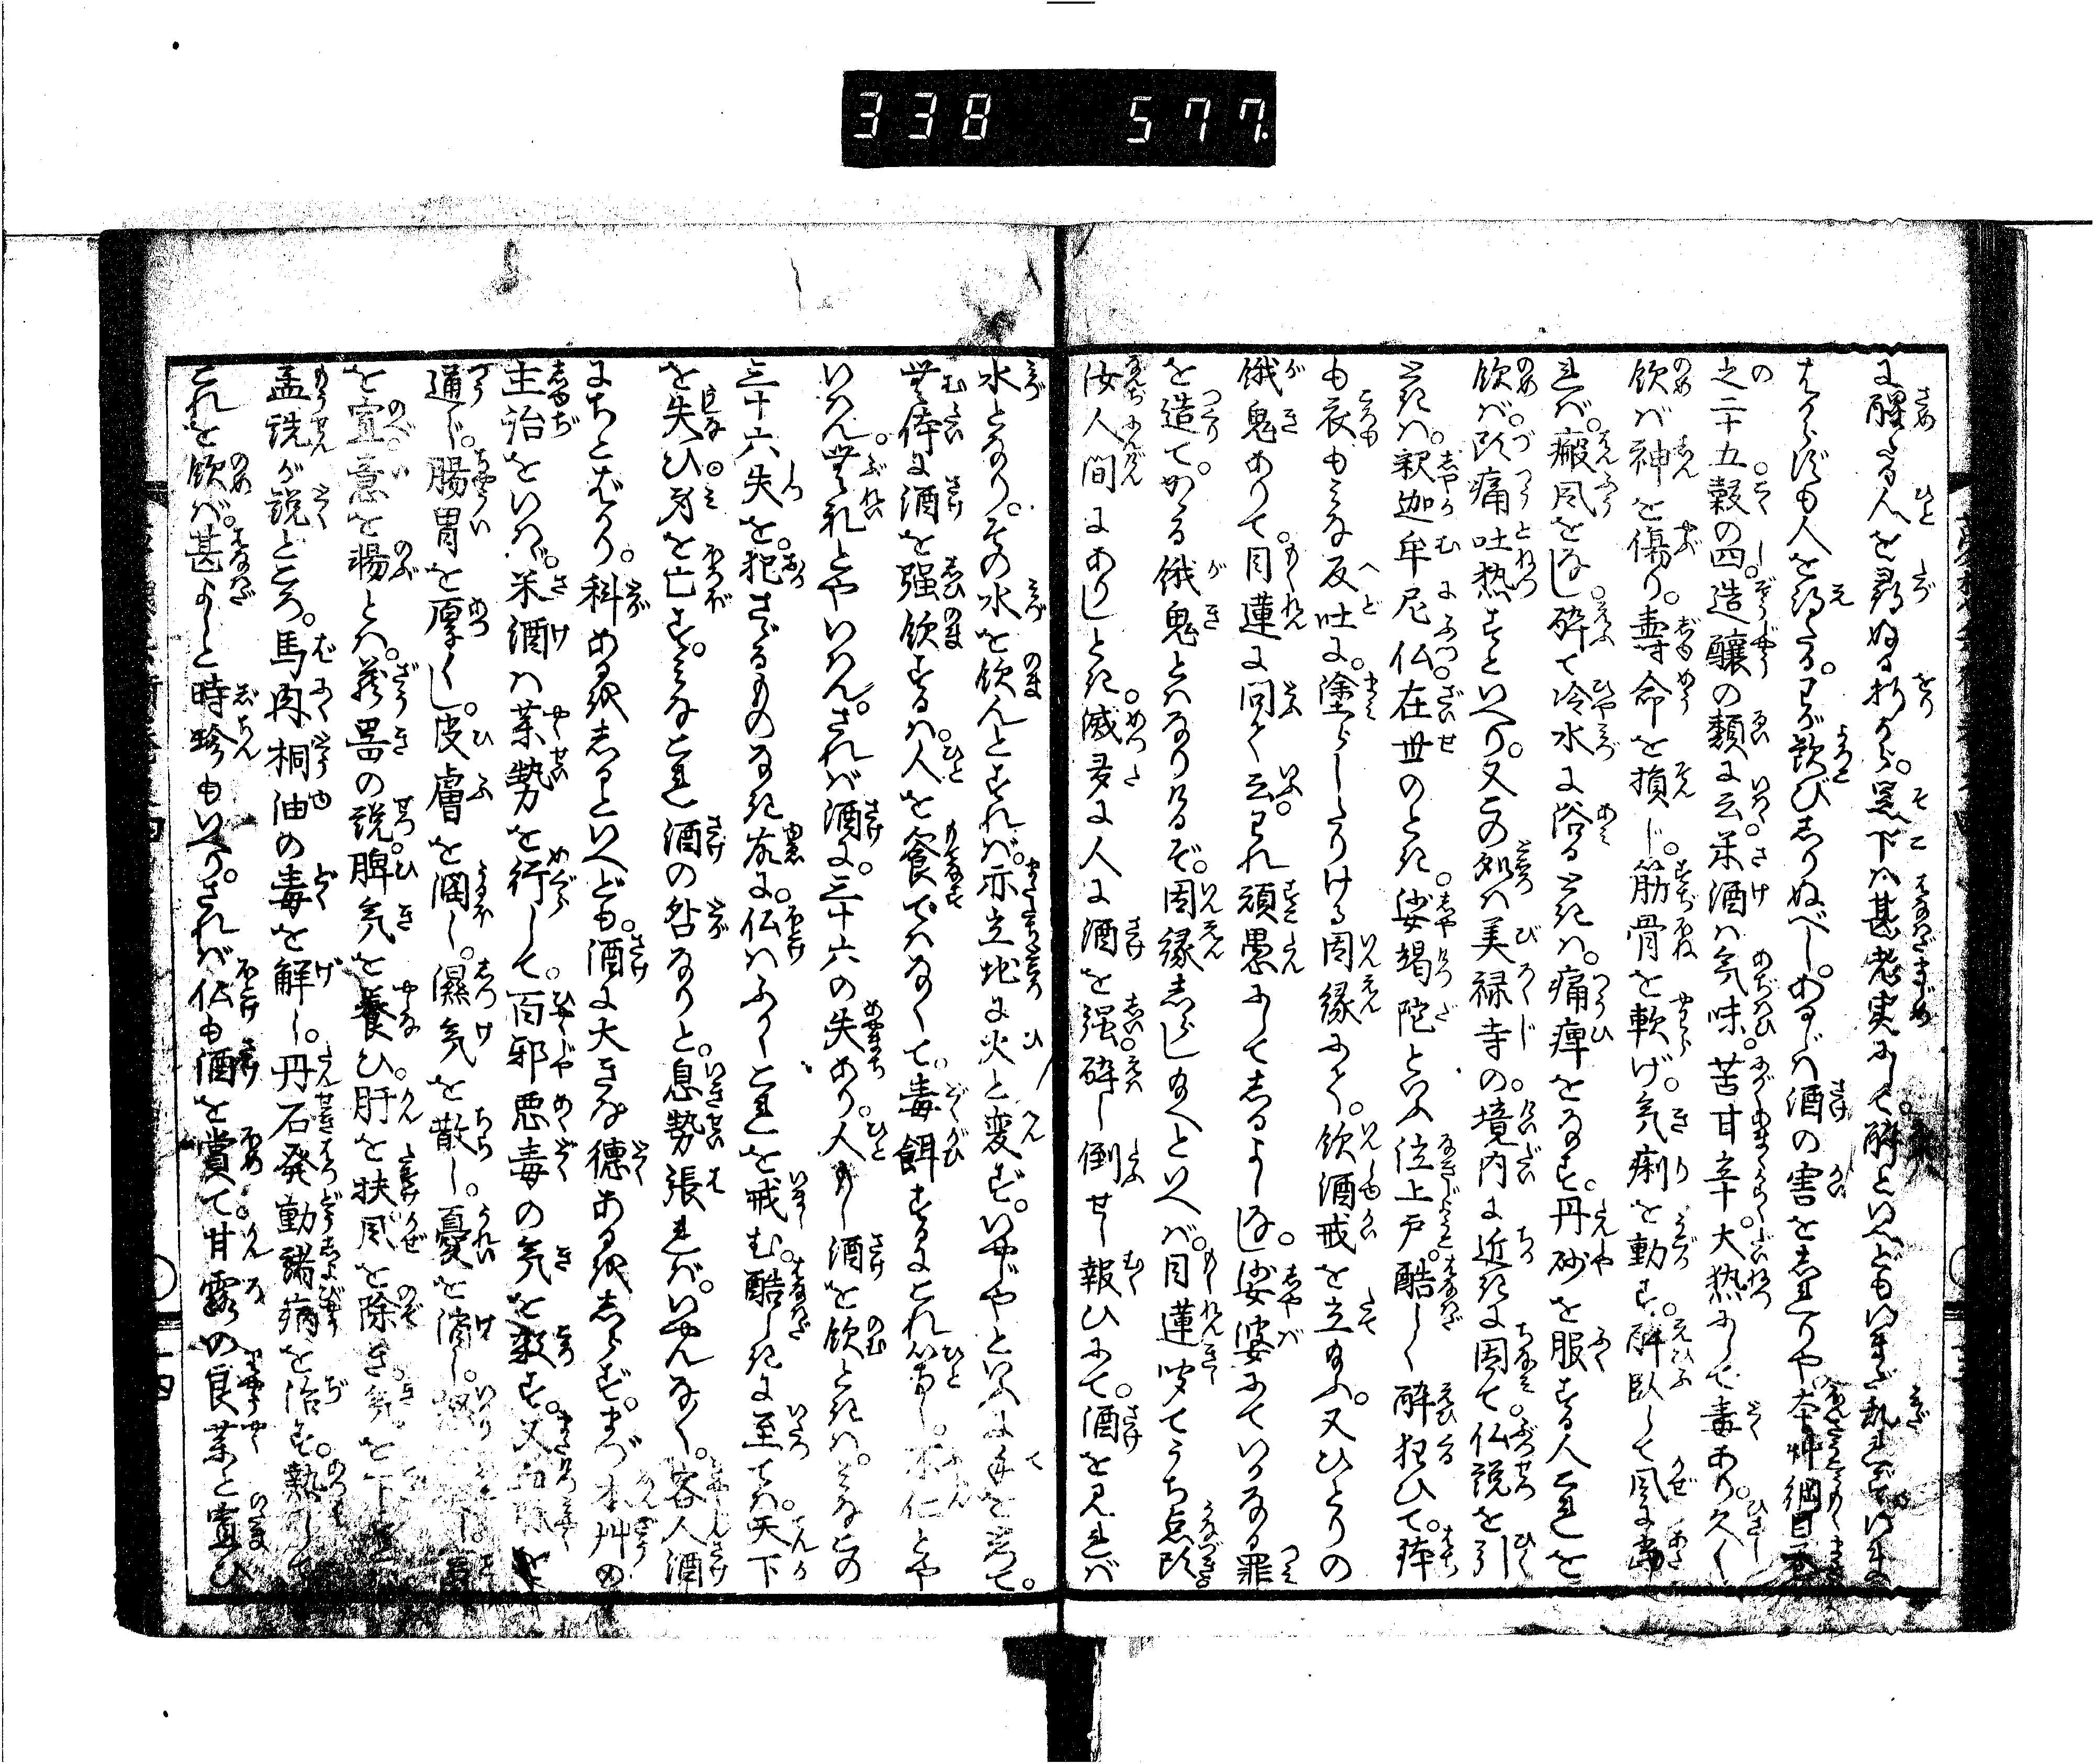 338 577
に醒たる人を尋ぬる折から。足下は甚老実にして。酔といへどもいまだ乱れず。はに
はからずも人を得たる。わが歓びしりぬべし。あるは酒の害をしれりや。本艸綱目
之二十五穀の四。造醸の類に云。米酒は気味。苦甘辛。大熱にして毒あり。久しく
飲ば神を傷り。寿命を損じ。筋骨を軟げ。気痢を動す。酔臥して風に当
れば。瘢風をなし。酔て冷水に浴るときは。痛痺をなす。丹砂を服する人これを
飲ば。頭痛吐熱すといへり。又この処は美禄寺の。境内に近きに因て仏説を引
ときは。釈迦牟尼仏。在世のとき。娑竭陀といふ位上戸。酷しく酔狂ひて。鉢
も衣もみな反吐に。塗らしたりける因縁にて。飲酒戒を立給ふ。又ひとりの
餓鬼ありて。目蓮に問て云。われ頑愚にしてしるよしなし。娑婆にていかなる罪
を造て。かゝる餓鬼とはなりけるぞ。因縁しらし給へといへば。目蓮聞てうち点頭
汝人間にありしとき。滅多に人に酒を強。酔し倒せし報ひにて。酒を見れば
水となり。その水を飲んとすれば。亦立地に火と変ず。いやといふに手を添て。
無体に酒を強飲するは。人を養ではなくて。毒餌するにこれ等し。不仁とや
いはん無礼とやいはん。されば酒に。三十六の失あり。人もし酒を飲ときは。みなこの
三十六失を。犯さゞるものなき故に。仏はふかくこれを戒む。酷しきに至ては。天下
を失ひ。身を亡す。みなこれ酒の咎なりと。息勢張れば。いやんなく。客人酒
にちとばかり。科ある事しるといへども。酒に大きな徳ある事しらず。まづ本艸の
主治をいはゞ。米酒は薬勢を行して。百邪悪毒の気を殺す。又血脈を
通じ。腸胃を厚くし。皮膚を潤し。湿気を散し。憂を消し。
を宣。意を暢とは。蔵器の説。脾気を養ひ。肝を扶。風を除き。気を下
孟詵が説ところ。馬肉桐油の毒を解し。丹石発動諸病を治す。熱して
これを飲ば。甚よしと時珍もいへり。されば仏も酒を賞て。甘露の良薬と宣ひ